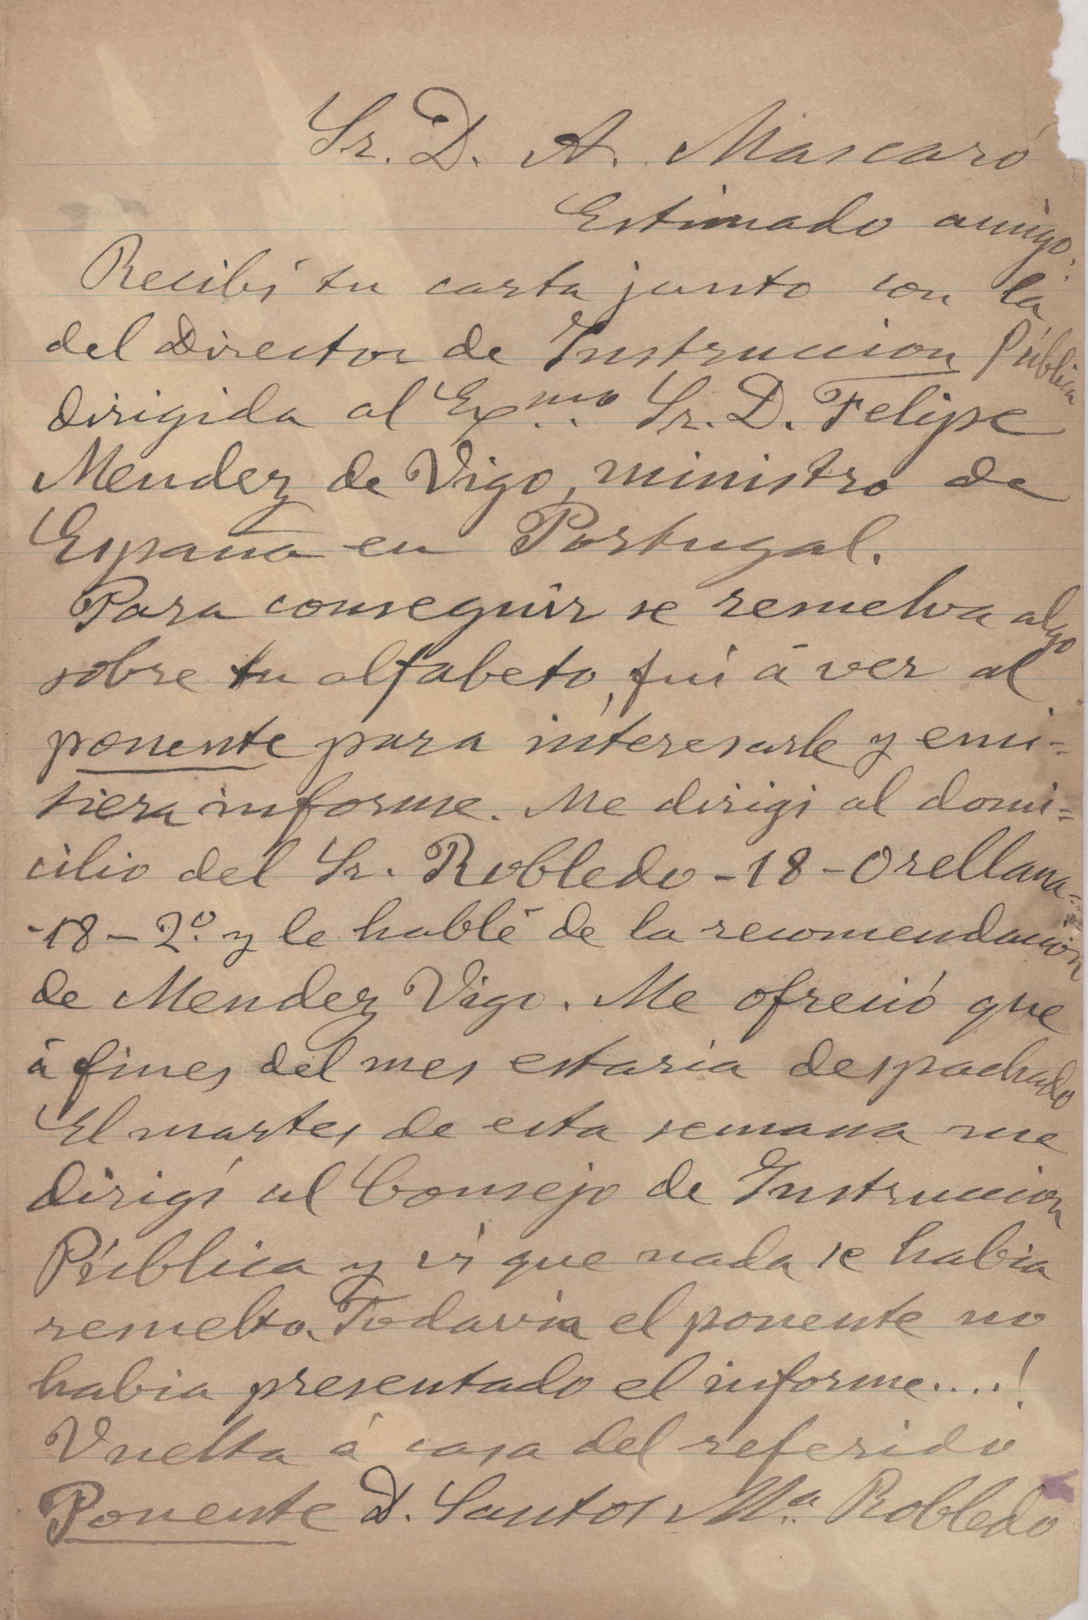 Sr. D. A. Mascaró
Estimado amigo:
Recibí tu carta junto con la
del Director de Instruccion Pública
dirigida al Exmo. Sr. D. Felipe
Mendez de Vigo, ministro de
España en Portugal.
Para conseguir se resuelva algo
sobre tu alfabeto, fuí á ver al
ponente para interesarle y emi-
tiera informe. Me dirigi al domi-
cilio del Sr. Robledo - 18 - Orellana -
- 18 - 2º. y le hablé de la recomendación
de Mendez Vigo. Me ofreció que
á fines del mes estaria despachado
El martes de esta semana me
dirigí al Consejo de Instruccion
Pública y ví que nada se habia
resuelto. Todavia el ponente no
habia presentado el informe....!
Vuelta á casa del referido
Ponente D. Santos Mª. Robledo